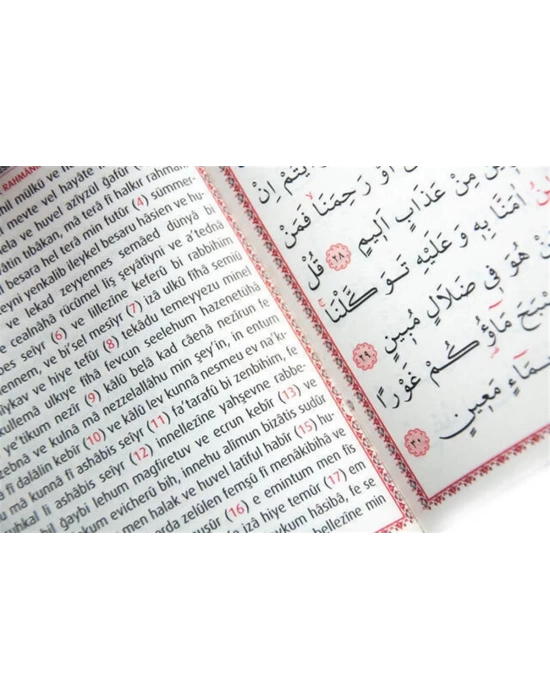 RAHMANI
mil mülkü ve
l meyte vel hayâte
ela ve huvel azîyzül gafûr
vâtin tıbâkan, mâ terâ fî halkır rahmân
l besara hel terâ min futûr (4) sümmer-
teyni yenkalib ileykel besaru hâsien ve hu-
ve lekad zeyyennes semâed dünyâ bi
e cealnâhâ rücûmel liş şeyâtiyni ve a'tednâ
bes seiyr (6) ve lillezîne keferû bi rabbihim
ennem, ve bi'sel mesiyr (7) izâ ulkû fîhâ semiû
hiykav ve hiye tefûr (8) tekâdu temeyyezu minel
küllemâ ulkıye fîhâ fevcun seelehum hazenetühâ
e'tikum nezîr (9) kâlû belâ kad câenâ nezîrun fe
zebnâ ve kulnâ mâ nezzelallâhu min şey'in, in entum
â fî dalâlin kebîr (10) ve kâlû lev kunnâ nesmeu ev na'k-
mâ kunnâ fî ashâbis seiyr (11) fa'tarafû bi zenbihim, fe
uhkal li ashâbis seiyr (12) innellezîne yahşevne rabbe-
bil ğaybi lehum magfiretuv ve ecrun kebîr (13) ve
kum evicherû bih, innehu alîmun bizâtis sudûr
men halak ve huvel latîful habîr (15) hu-
arda zelûlen femşû fî menâkibihâ ve
nuşûr (16) e emintum men fis
e izâ hiye temûr (17) em
eykum hâsibâ, fe se
bellezîne min
اِنْ
اَوْ رَحِمَنَا فَمَنْ
مِنْ عَذَابٍ اَلِيمٍ ٢٨ قُلْ
اٰمَنَّا بِهِ وَعَلَيْهِ تَوَكَّلْنَا
هُوَ فِى ضَلَالٍ مُبِينٍ ٢٩
مَاؤُكُمْ غَوْرًا
مَعِينٍ ٣٠